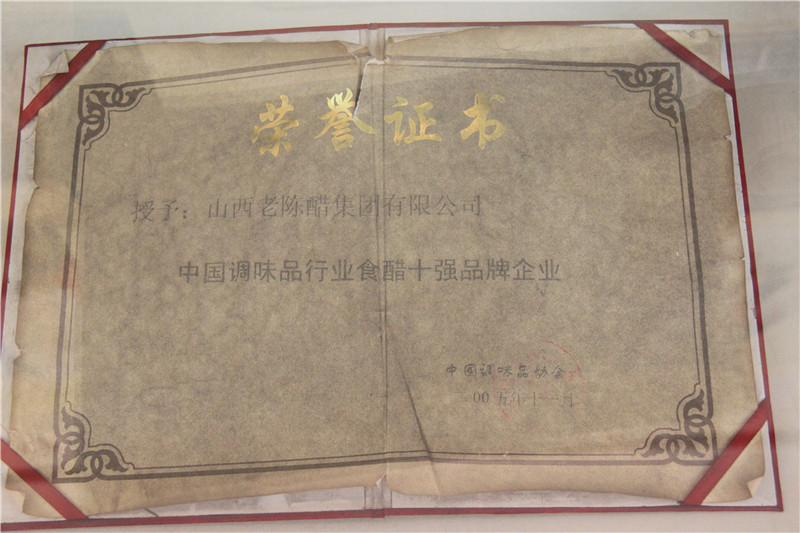 荣誉证书
授予：山西老陈醋集团有限公司
中国调味品行业食醋十强品牌企业
中国调味品协会
二00五年十一月